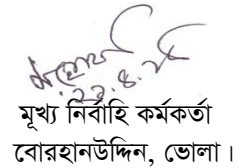 ২২.৪.২১
মূখ্য নির্বাহি কর্মকর্তা
বোরহানউদ্দিন, ভোলা।